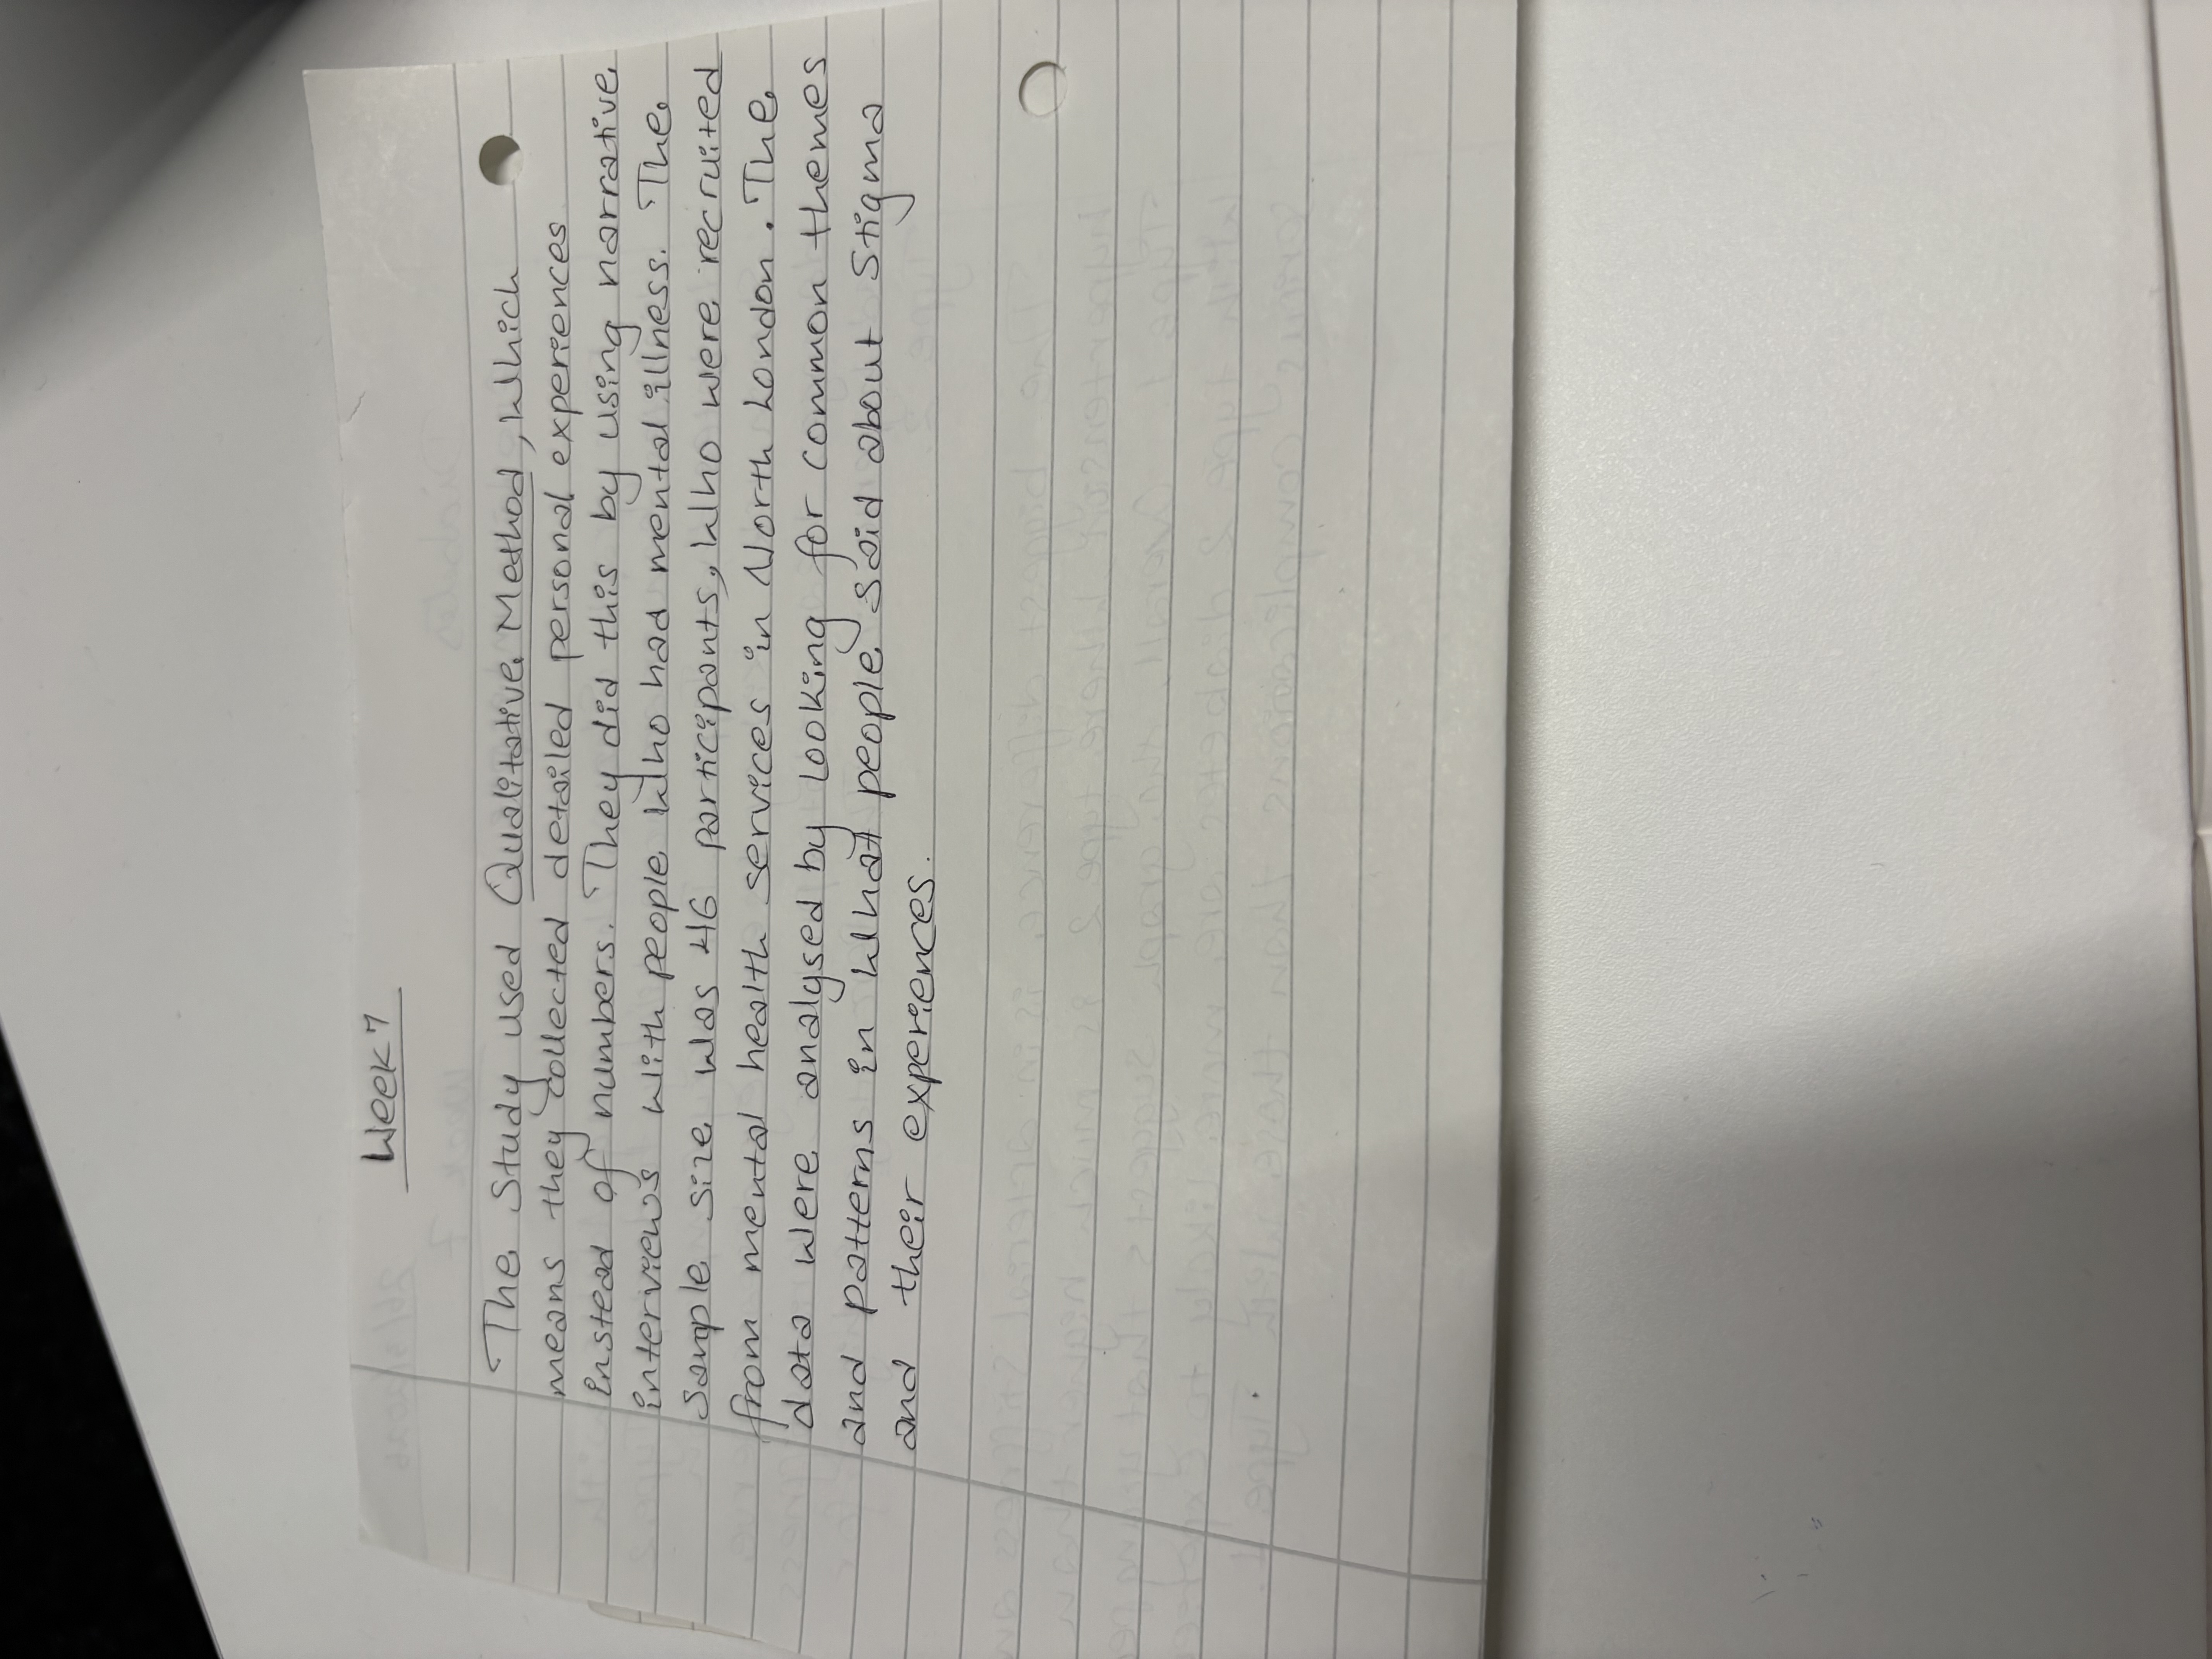 Week 7
The Study used Qualitative Method, which
means they collected detailed personal experiences
instead of numbers. They did this by using narrative
interviews with people who had mental illness. The
Sample size was 46 participants, who were recruited
from mental health services in North London. The
data were analysed by looking for common themes
and patterns in what people said about Stigma
and their experiences.